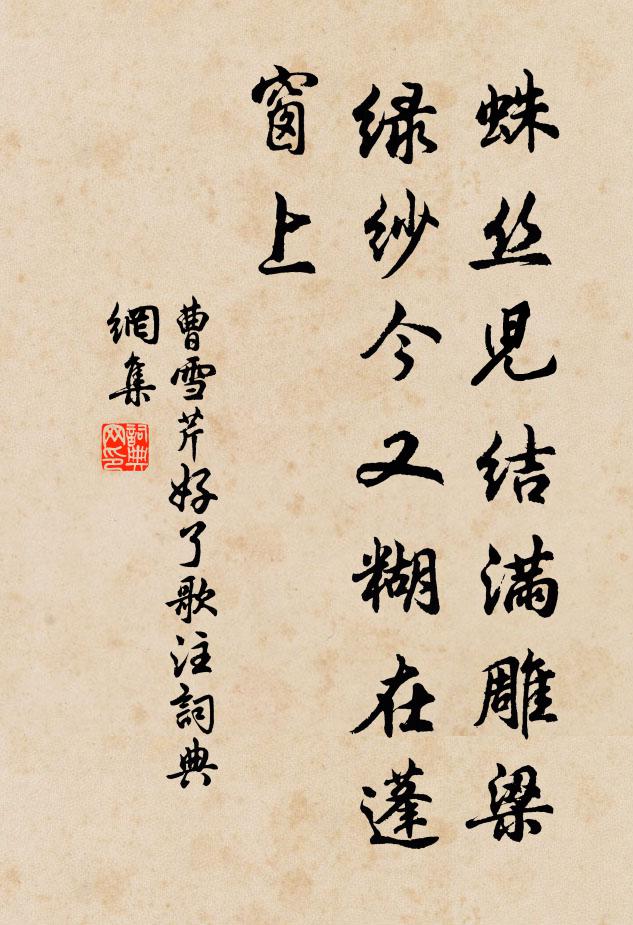 蛛丝児结满雕梁
绿纱今又糊在蓬
窗上
曹雪芹好了歌注詞典
網集
詞典
网印